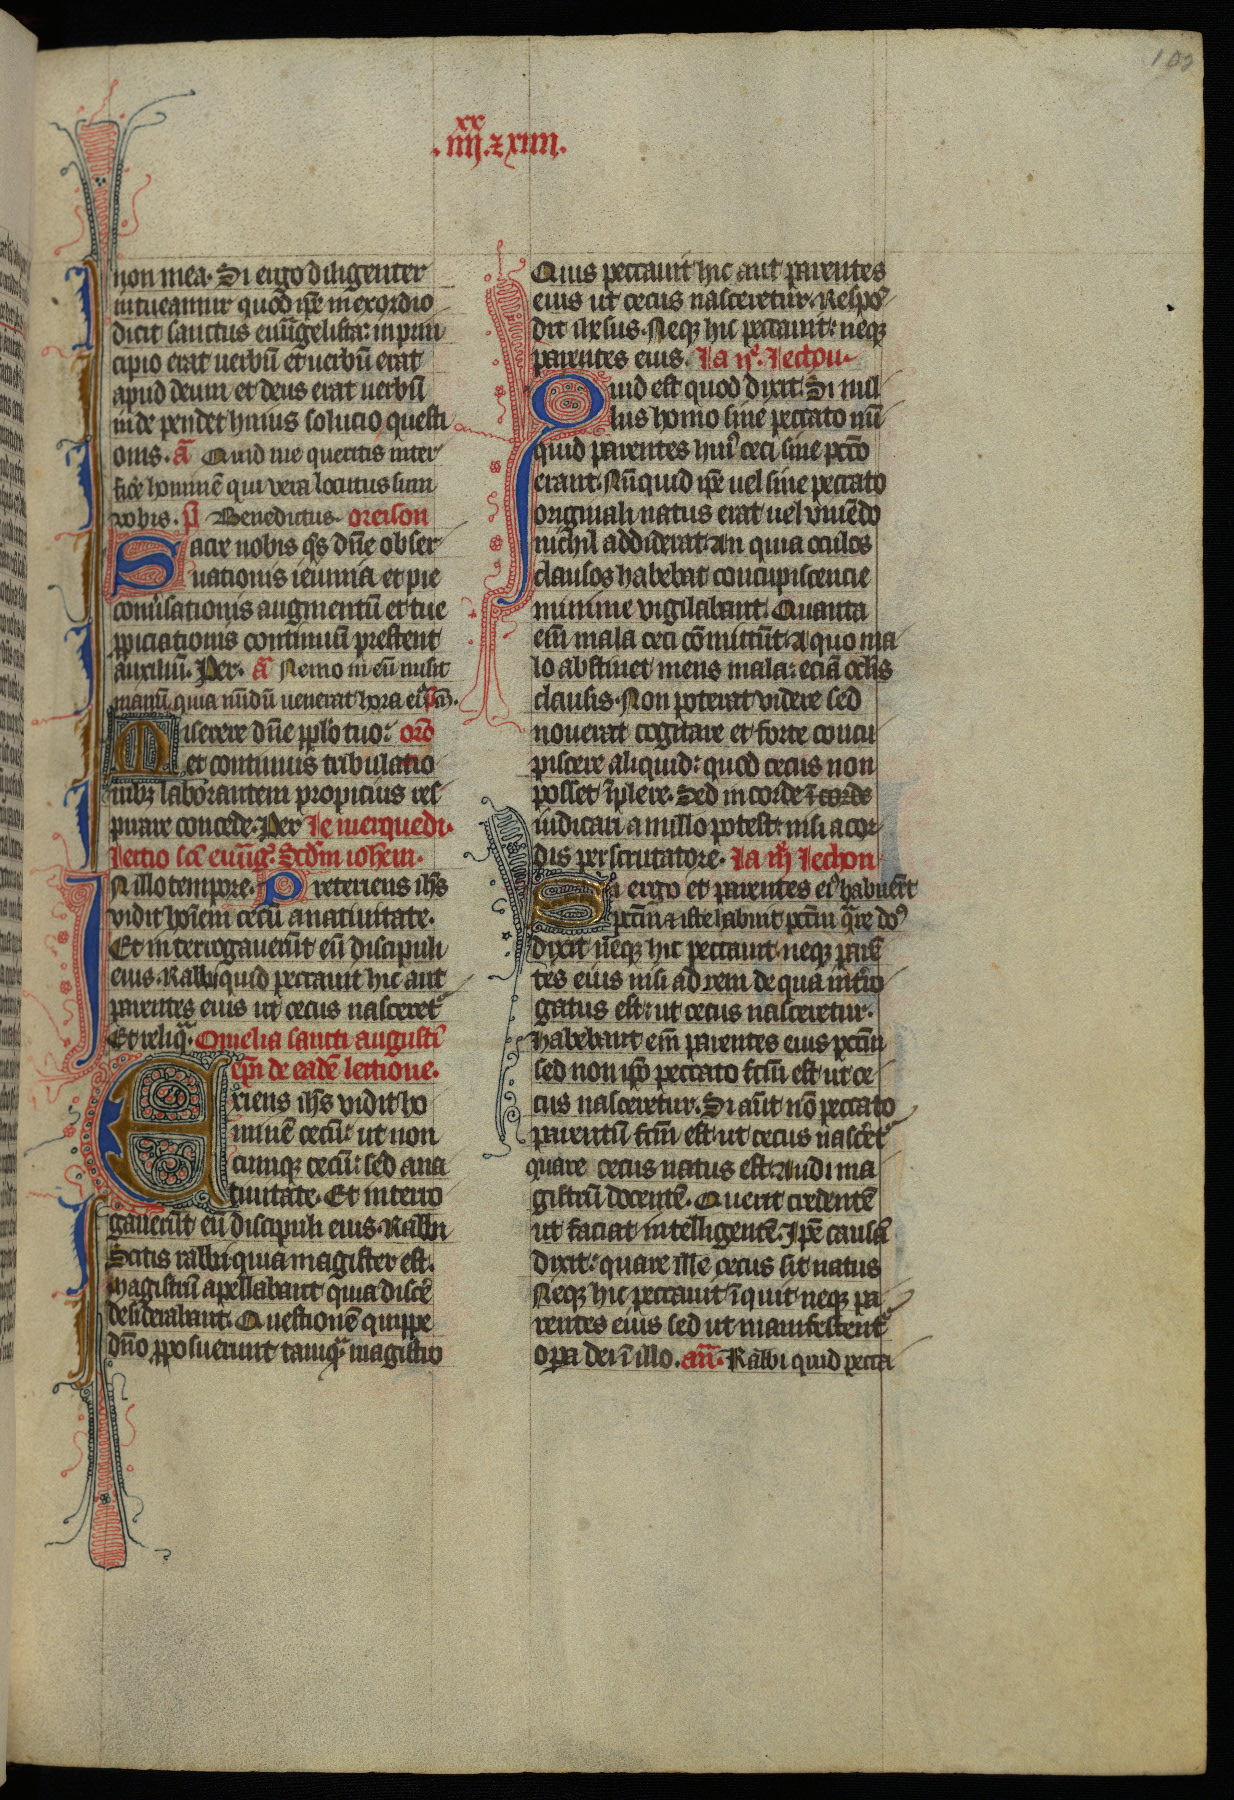 102
xx
.iiii. ⁊ xiiii.
non mea. Si ergo diligenter
intueamur quod ipse in exordio
dicit sanctus euu̅gelista: in prin
cipio erat uerbu̅ et uerbu̅ erat
apud deum et deus erat uerbu̅
inde pendet huius solucio questi
onis. a̅ Quid me queritis inter
fice̅ homine̅ qui vera locutus sum
vobis. p̅ Benedictus. oreison
Sacre nobis q̅s dn̅e obser
uationis ieiunia et pie
conu̅sationis augmentu̅ et tue
ꝓpiciationis continuu̅ prestent
auxiliu̅. Per. a̅ Nemo in eu̅ misit
manu̅ quia nu̅du̅ uenerat hora ei᷒
Miserere dn̅e pplo tuo: oro̅
et continuis tribulatio
nibꝫ laborantem propicius res
pirare concede. Per Ie merquedi.
lectio sc̅i euu̅g̅. Scd̅m ioh̅em.
IN illo tempore. Preteriens ih̅s
vidit ho̅iem cecu̅ a natiuitate.
Et interrogaueru̅t eu̅ discipuli
eius. Rabbi quid peccauit hic aut
parentes eius ut cecus nasceret᷑
Et reliq̅. Omelia sancti augusti̅
ep̅i de eade̅ lectione.
Eriens ih̅s vidit ho
mine̅ cecu̅: ut non
cumqꝫ cecu̅: sed a na
tiuitate. Et interro
gaueru̅t eu̅ discipuli eius. Rabbi
Scitis rabbi quia magister est.
magistru̅ apellabant quia disce̅
desiderabant. Questione̅ quippe
dn̅o ꝓposuerunt tamq̅ magistro
Quis peccauit hic aut parentes
eius ut cecus nasceretur. Respo̅
dit ihesus. Neqꝫ hic peccauit: neqꝫ
parentes eius. la ii᷒. lechon.
Quid est quod dixit: Si nul
lus homo sine peccato nu̅
quid parentes hui᷒ ceci sine pcc̅o
erant. Nu̅quid ipse uel sine peccato
originali natus erat uel viue̅do
nichil addiderat. An quia oculos
clausos habebat concupiscencie
minime vigilabant. Quanta
eni̅ mala ceci co̅mittu̅t. A quo ma
lo abstinet mens mala: ecia̅ oc̅lis
clausis. Non poterat videre sed
nouerat cogitare et forte concu
piscere aliquid: quod cecus non
posset i̅plere. Sed in corde i̅ corde
iudicari a nullo potest: nisi a cor
dis perscrutatore. la iii̅ lechon
Si ergo et parentes ei᷒ habueru̅t
pcc̅m ⁊ iste habuit pcc̅m q̅re do᷒
dixit neqꝫ hic peccauit neqꝫ pare̅
tes eius nisi ad rem de qua int̅ro
gatus est: ut cecus nasceretur.
Habebant eni̅ parentes eius pcc̅m
sed non ip̅o peccato fc̅m est ut ce
cus nasceretur. Si aut̅ no̅ peccato
parentu̅ fc̅m est ut cecus nasceret᷑
quare cecus natus est: Audi ma
gistru̅ docente̅. Querit credente̅
ut faciat intelligente̅. Ip̅e causa̅
dixit: quare ille cecus sit natus
Neqꝫ hic peccauit i̅quit neqꝫ pa
rentes eius sed ut manifestent᷑
opa dei i̅ illo. an̅. Rabbi quid pecca